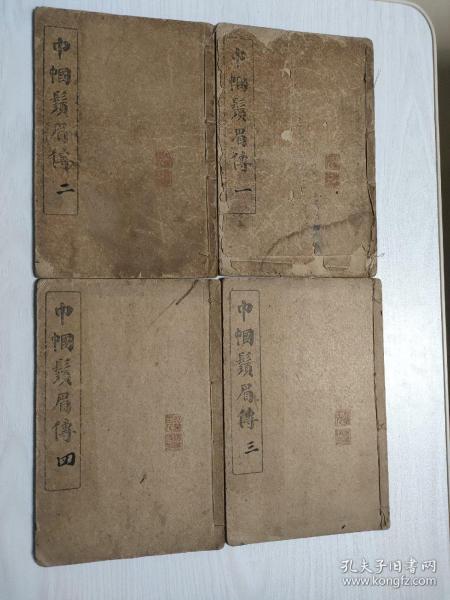 巾帼鬚眉傳 一
巾帼鬚眉傳 二
巾帼鬚眉傳 三
巾帼鬚眉傳 四
孔夫子旧书网
www.kongfz.com